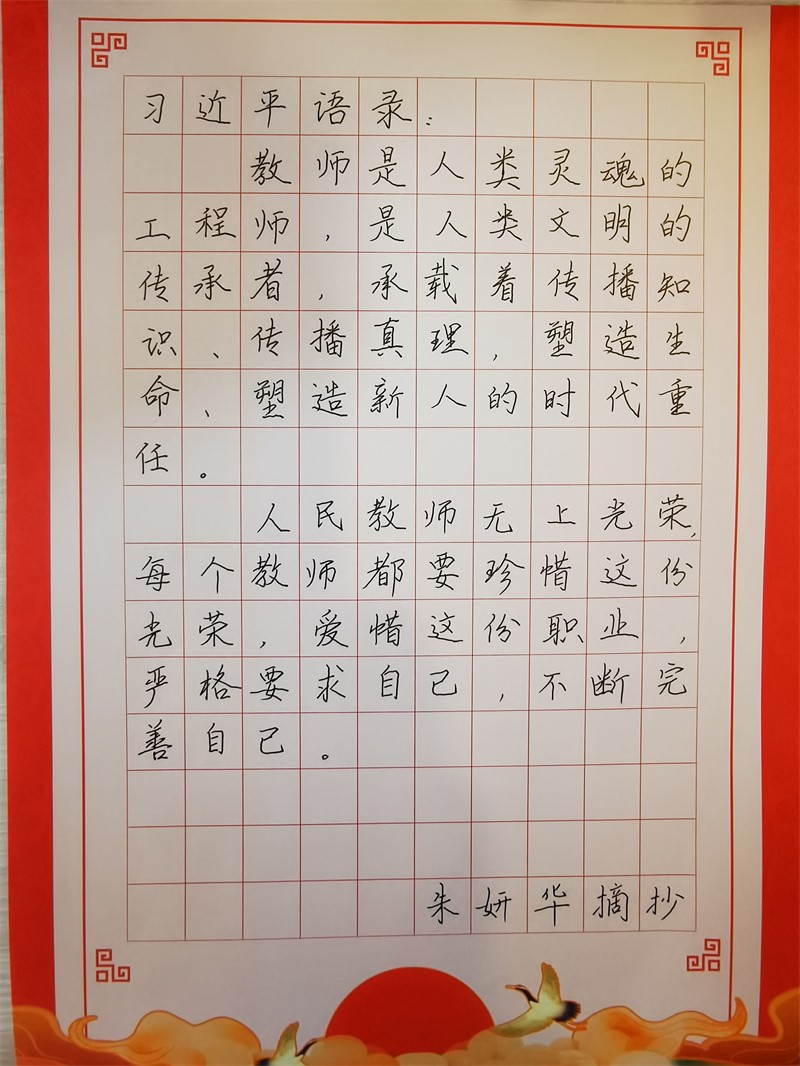 习近平语录：
教师是人类灵魂的
工程师，是人类文明的
传承者，承载着传播知
识、传播真理，塑造生
命、塑造新人的时代重
任。
人民教师无上光荣，
每个教师都要珍惜这份
光荣，爱惜这份职业，
严格要求自己，不断完
善自己。
朱妍华摘抄